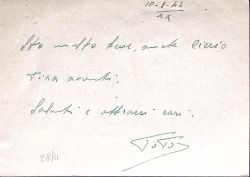 Sto molto bene, anche Ciccio
tira avanti.
Saluti e abbracci cari.
Totò
28/11